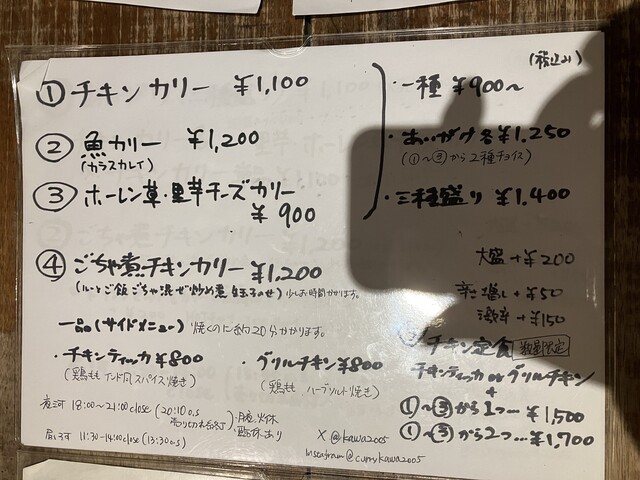 ① チキンカリー ¥1,100
② 魚カリー ¥1,200
(カラスカレイ)
③ ホーレン草・里芋チーズカリー
¥900
(税込み)
・一種 ¥900〜
・あいがけ各¥1,250
(①〜③から2種チョイス)
・三種盛り ¥1,400
④ ごちゃ煮チキンカリー ¥1,200
(ルーとご飯ごちゃ混ぜ炒め煮 玉子のせ) 少しお時間かかります。
大盛+¥200
辛さ増し+¥50
激辛+¥150
一品(サイドメニュー) 焼くのに約20分かかります。
・チキンティッカ¥800
(鶏もも インド風スパイス焼き)
・グリルチキン¥800
(鶏もも ハーブソルト焼き)
チキン定食 数量限定
チキンティッカ or グリルチキン
+
①〜③から1つ…¥1,500
①〜③から2つ…¥1,700
18:00〜21:00close (20:10 o.s
売り切れ終了)
・月夜、火休
・臨休あり
11:30-14:00close (13:30 o.s)
X @kawa2005
Instagram@currykawa2005